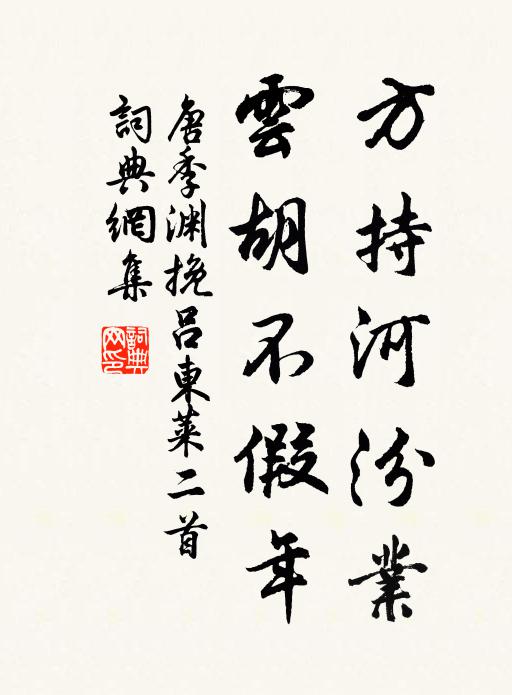 方持河汾業
雲胡不假年
唐季渊挽呂東萊二首
詞典網集
詞典網印